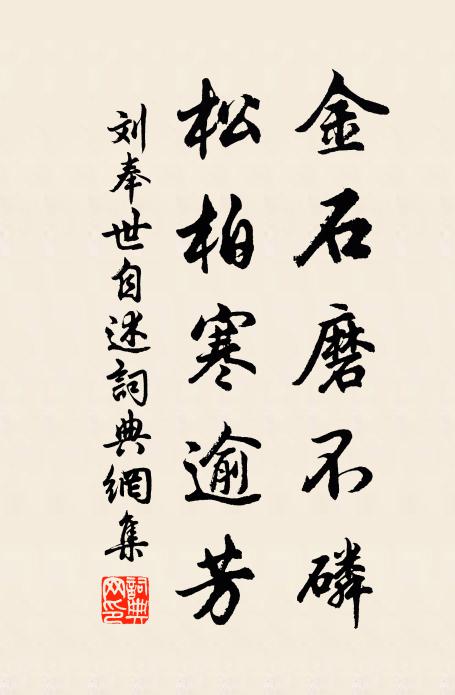 金石磨不磷
松柏寒逾芳
刘奉世自述詞典網集
詞典網印